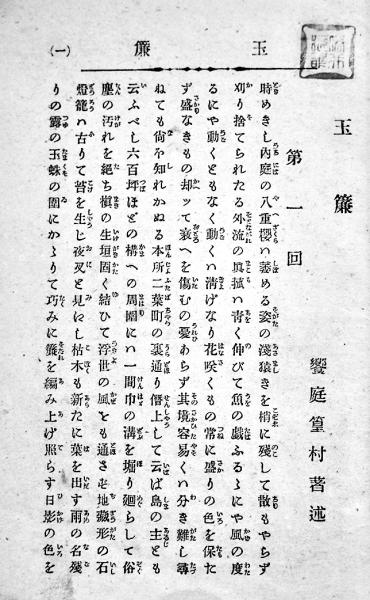 玉簾
（一）
玉簾
第一回
饗庭篁村著述
時めきし內庭の八重櫻ハ萎める姿の淺猿きを梢に殘して散もやらず
刈り捨てられたる外流の眞菰ハ靑く伸びて魚の戯ふるゝにや風の度
るにや動くともなく動くハ淸げなり花咲くもの常に盛りの色を保た
ず盛なきもの却ッて衰へを傷むの憂あらず其境容易くハ分き難し尋
ねても尙ほ知れかぬる本所二葉町の裏通り僭上して云ば島の主とも
云ふべし六百坪ほどの構への周圍にハ一間巾の溝を堀り廻らして俗
塵の汚れを絕ち槇の生垣固く結ひて浮世の風をも通させず地藏形の石
燈籠ハ古りて苔を生じ夜叉と見にし枯木も新たに葉を出す雨の名殘
りの露の玉蛛の圍にかゝりて巧みに簾を編み上げ照らす日影の色を